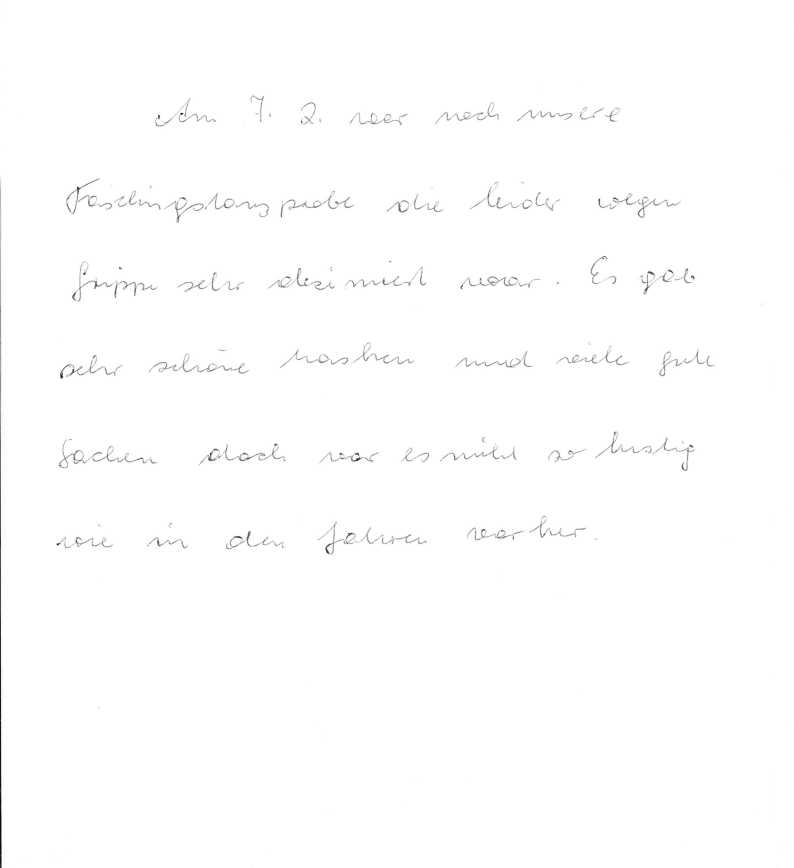 Am 7. 2. war noch unsere
Faschingstanzprobe die leider wegen
Grippe sehr dezimiert war. Es gab
sehr schöne Masken und viele gute
Sachen doch war es nicht so lustig
wie in den Jahren vorher.